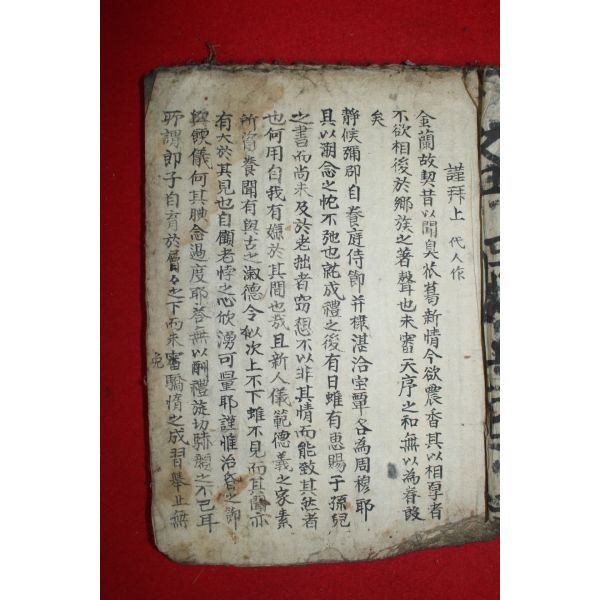 謹拜上 代人作
金蘭故契昔以聞臭茲葛新情今欲農香其以相孚者
不欲相後於鄕族之著聲也未審天序之和無以為眷
矣
靜候彌卲自養庭侍節并棣湛洽宝覃各為周穆耶
具以溯念之忱不弛也就成禮之後有日雖有惠賜于孫兒
之書而尚未及於老拙者窃想不以非其情而能致其然者
也何用自我有嫌於其間也哉且新人儀範德義之家素
所資養聞有與古之淑德令似次上不下雖不見而其聞亦
有大於其見也自顧老悖之心欣湧可量耶謹惟治資之節
與餽儀何其腆念過度耶答無以酬禮旋切騂顔之不已耳
所謂郎子自育於眉之下而未審驕惰之成習舉止無